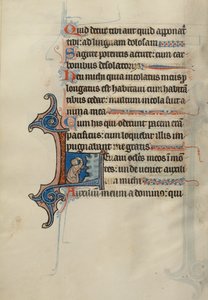 Quid detur tibi aut quid apponat
tibi: ad linguam dolosam
Sagitte potentis acute: cum car
bonibus desolatoriis
Heu michi quia incolatus meus p
longatus est habitaui cum habitan
tibus cedar: multum incola fuit a
nima mea
Cum his qui oderunt pacem eram
pacificus: cum loquebar illis im
pugnabant me gratis
Leuaui oclos meos ī mō
tes: unde ueniet auxili
michi
Auxilium meum a domino: qui